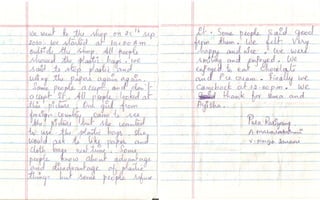 we went to the shop on 25th sep
2010. we started at 10:00 a.m
outside the shop all people
showed the plastic bags. we
said to stop plastic and
using the paper again again.
Some people accept and don't
accept it. All people looked at
this picture. One girl from
foreign country came to see
the picture but she wanted
to use the plastic bags. She
would ask to use paper and
cloth bags next time. Some
people know about advantage
and disadvantage of plastic
things but some people refuse
it. Some people said good
from them. We felt very
happy and nice. we were
smiling and enjoyed. We
enjoyed to eat chocolate
and ice cream. Finally we
cameback at 12:00 pm. We
thank for Uma and
Ajisha.